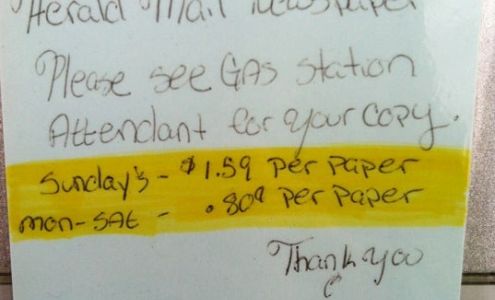 Herald Mail Newspaper
Please see GAS station
Attendant for your copy.
Sunday's - $1.59 per paper
mon-SAt - .80¢ per paper
Thank you